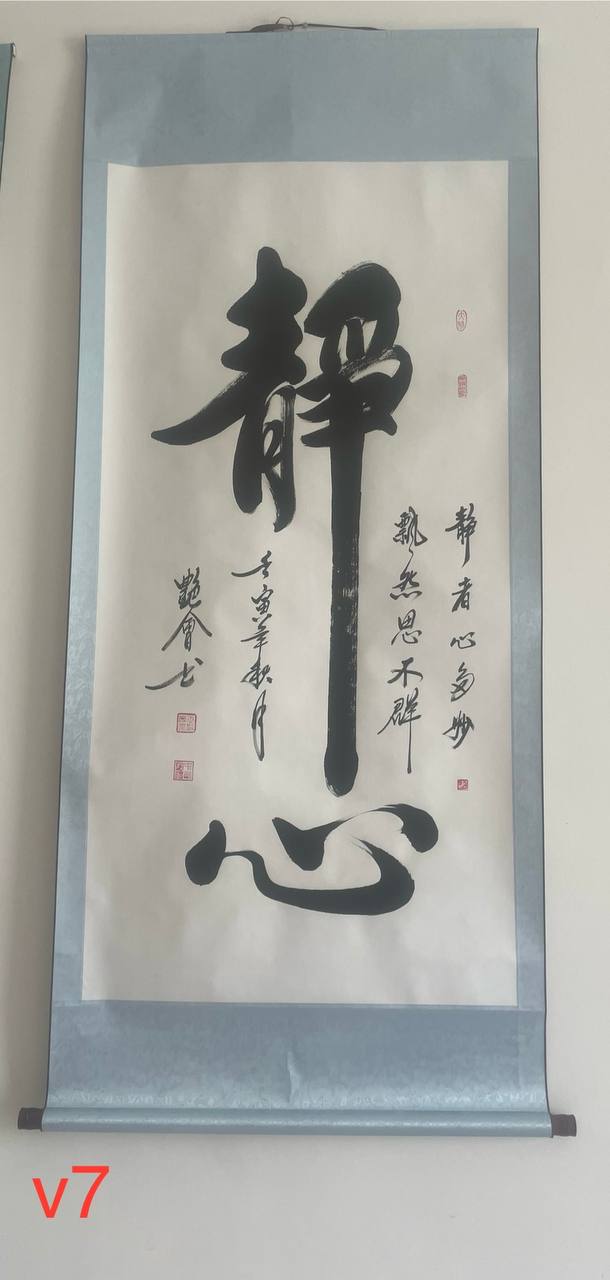 靜心
靜者心多妙
飄然思不群
壬寅年秋月
艷會書
v7